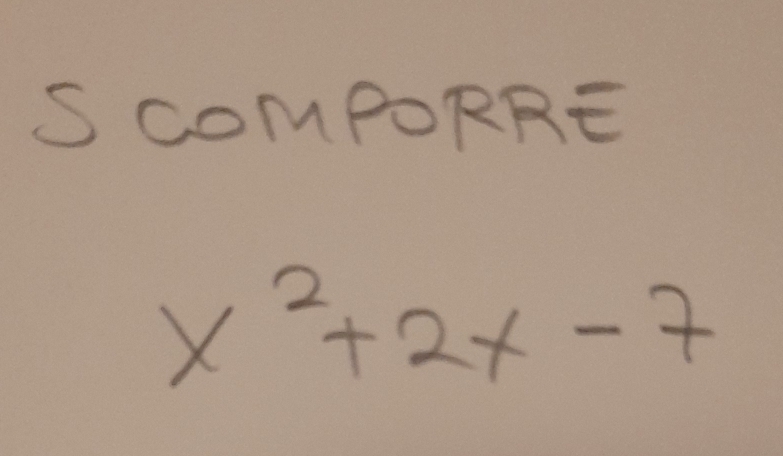 SCOMPORRE
x²+2x-7